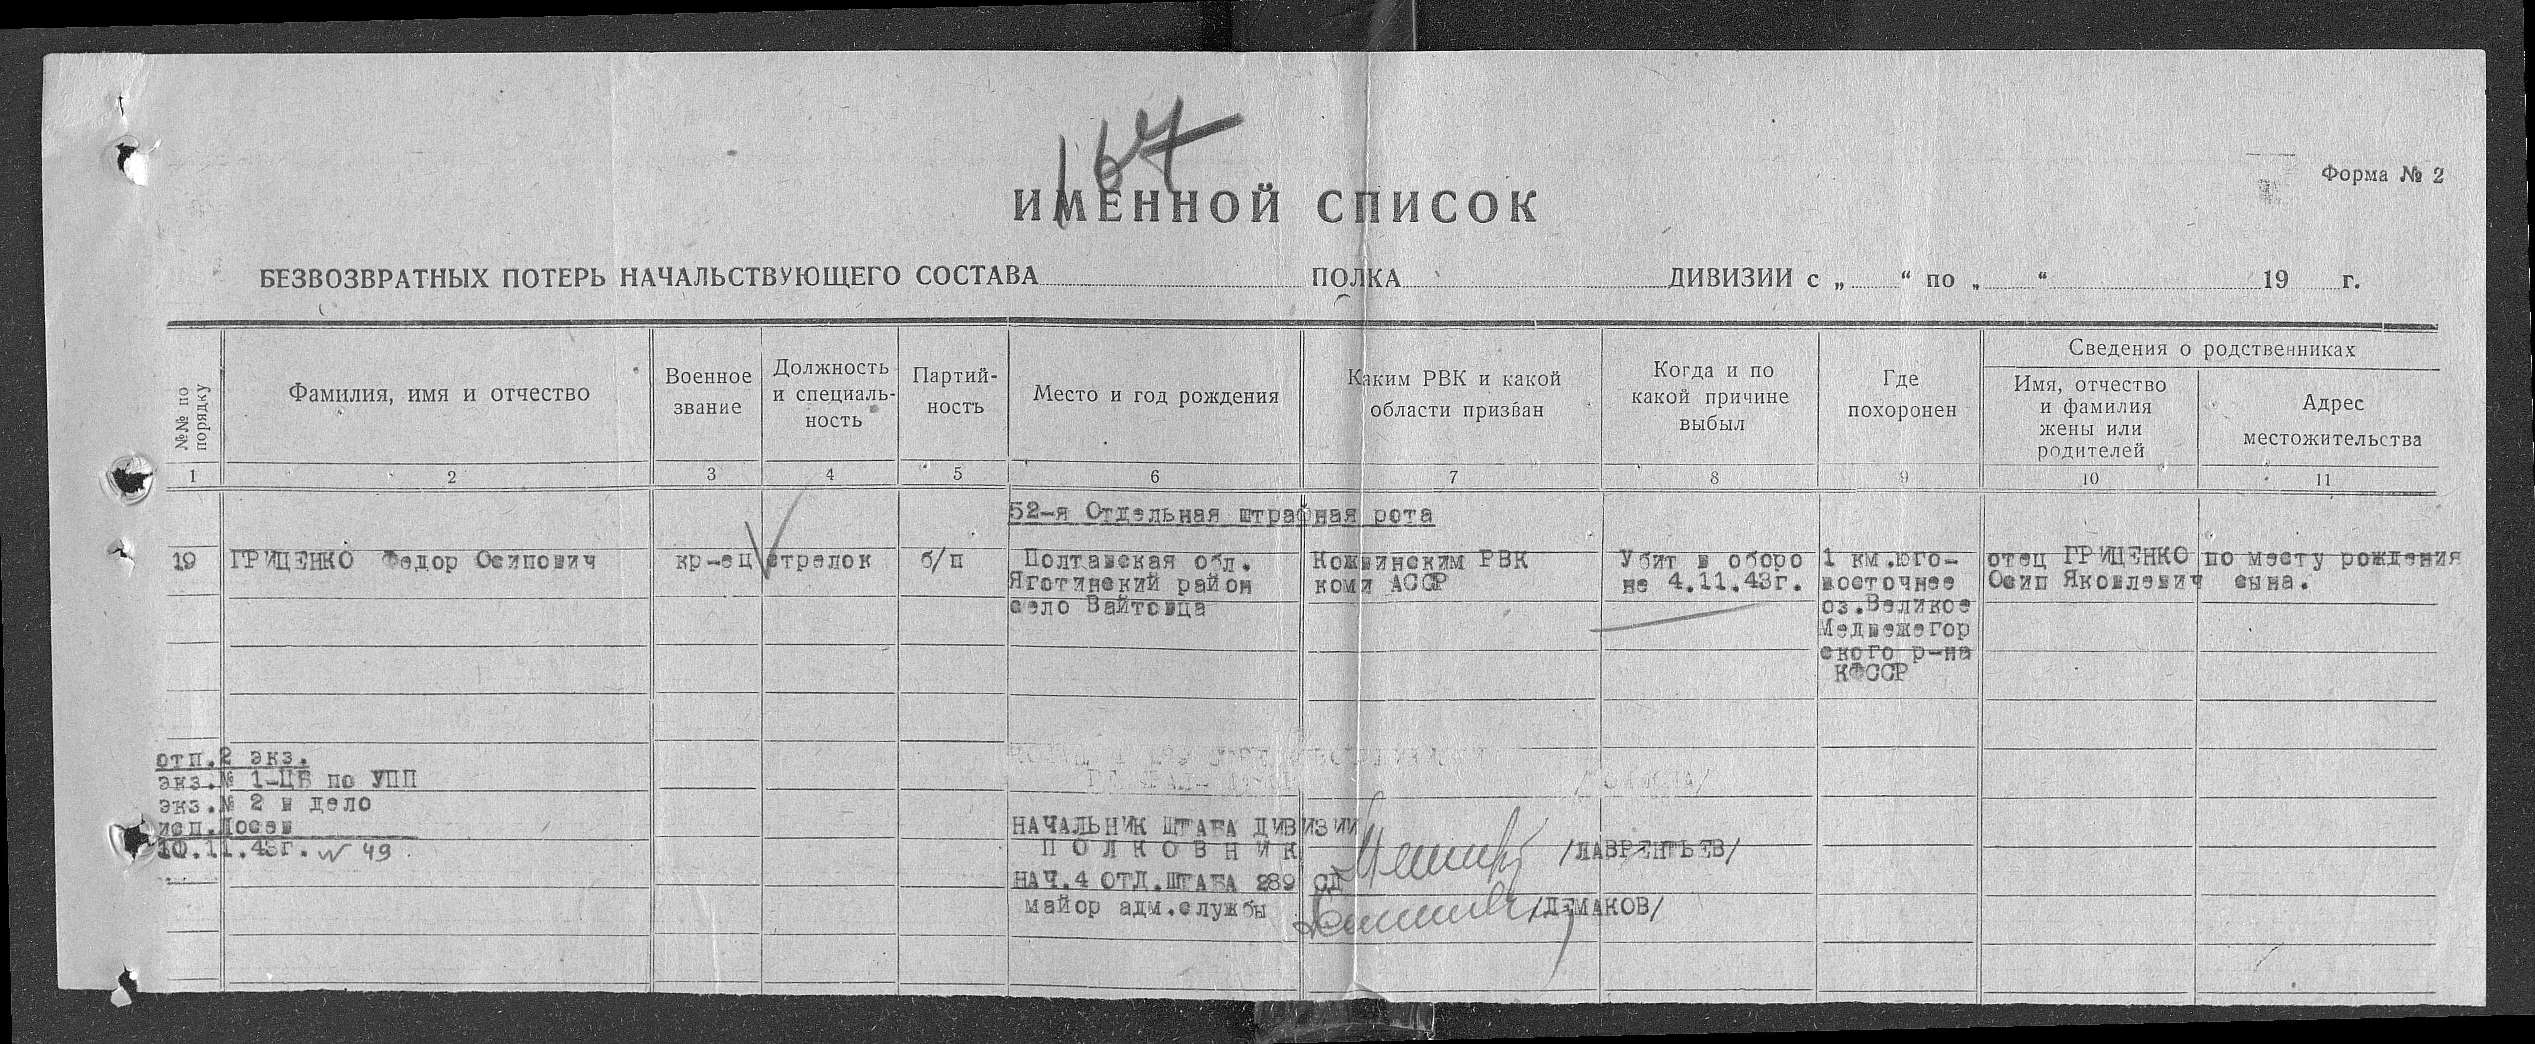 167
Форма № 2
ИМЕННОЙ СПИСОК
БЕЗВОЗВРАТНЫХ ПОТЕРЬ НАЧАЛЬСТВУЮЩЕГО СОСТАВА ПОЛКА ДИВИЗИИ с „ “ по „ “ 19 г.
№№ по порядку
Фамилия, имя и отчество
Военное
звание
Должность
и специаль-
ность
Партий-
ность
Место и год рождения
Каким РВК и какой
области призван
Когда и по
какой причине
выбыл
Где
похоронен
Сведения о родственниках
Имя, отчество
и фамилия
жены или
родителей
Адрес
местожительства
1 2 3 4 5 6 7 8 9 10 11
52-я Отдельная штрафная рота
19
ГРИЦЕНКО Федор Осипович
кр-ец
стрелок
б/п
Полтавская обл.
Яготинский район
село Вайтовца
Кожвинским РВК
коми АССР
Убит в оборо
не 4.11.43г.
1 км.юго-
восточнее
оз.Великое
Медвежегор
ского р-на
КФССР
отец ГРИЦЕНКО
Осип Яковлевич
по месту рождения
сына.
отп.2 экз.
экз.№ 1-ЦБ по УПП
экз.№ 2 в дело
исп.Лосев
10.11.43г. № 49
НАЧАЛЬНИК ШТАБА ДИВИЗИИ
ПОЛКОВНИК /ЛАВРЕНТЬЕВ/
НАЧ.4 ОТД.ШТАБА 289 СД
майор адм.службы /ДЕМАКОВ/